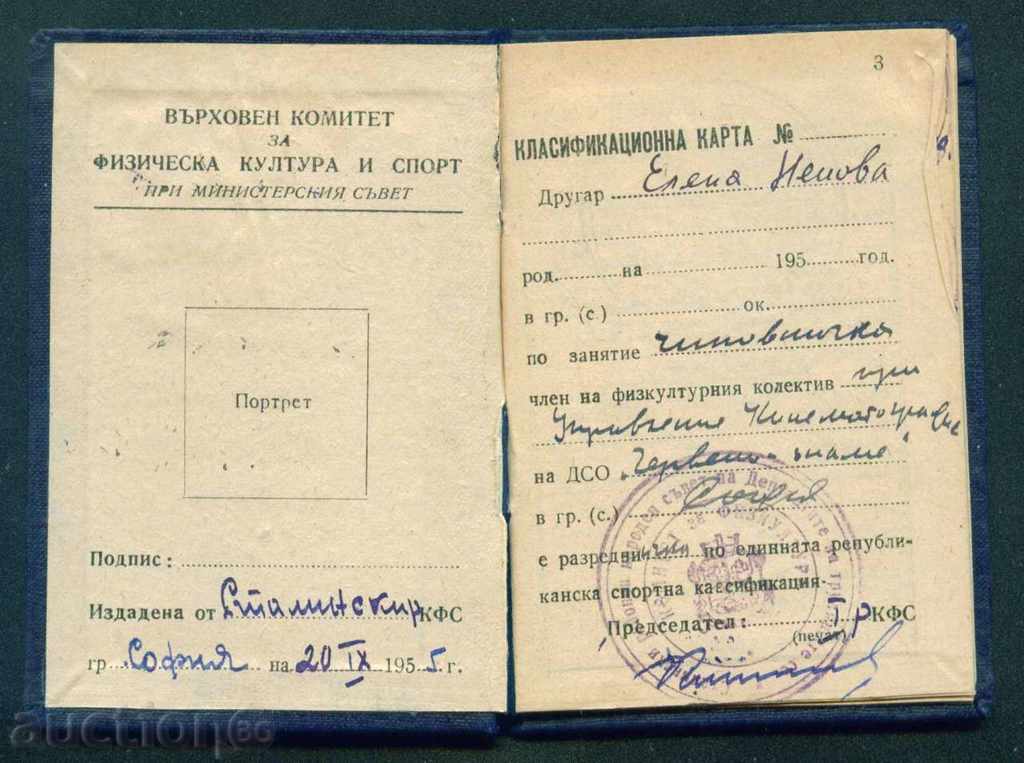 ВЪРХОВЕН КОМИТЕТ
ЗА
ФИЗИЧЕСКА КУЛТУРА И СПОРТ
ПРИ МИНИСТЕРСКИЯ СЪВЕТ
Портрет
Подпис:
Издадена от Сталински р КФС
гр. София на 20 IX 1955 г.
3
КЛАСИФИКАЦИОННА КАРТА №
Другар Елена Ненова
род. на 195 год.
в гр. (с.) ок.
по занятие чиновничка
член на физкултурния колектив при
Управление Кинематография
на ДСО „Червено знаме"
в гр. (с.) София
е разредни по единната републи-
канска спортна касификация.
Председател: РКФС
(печат)
auction bg